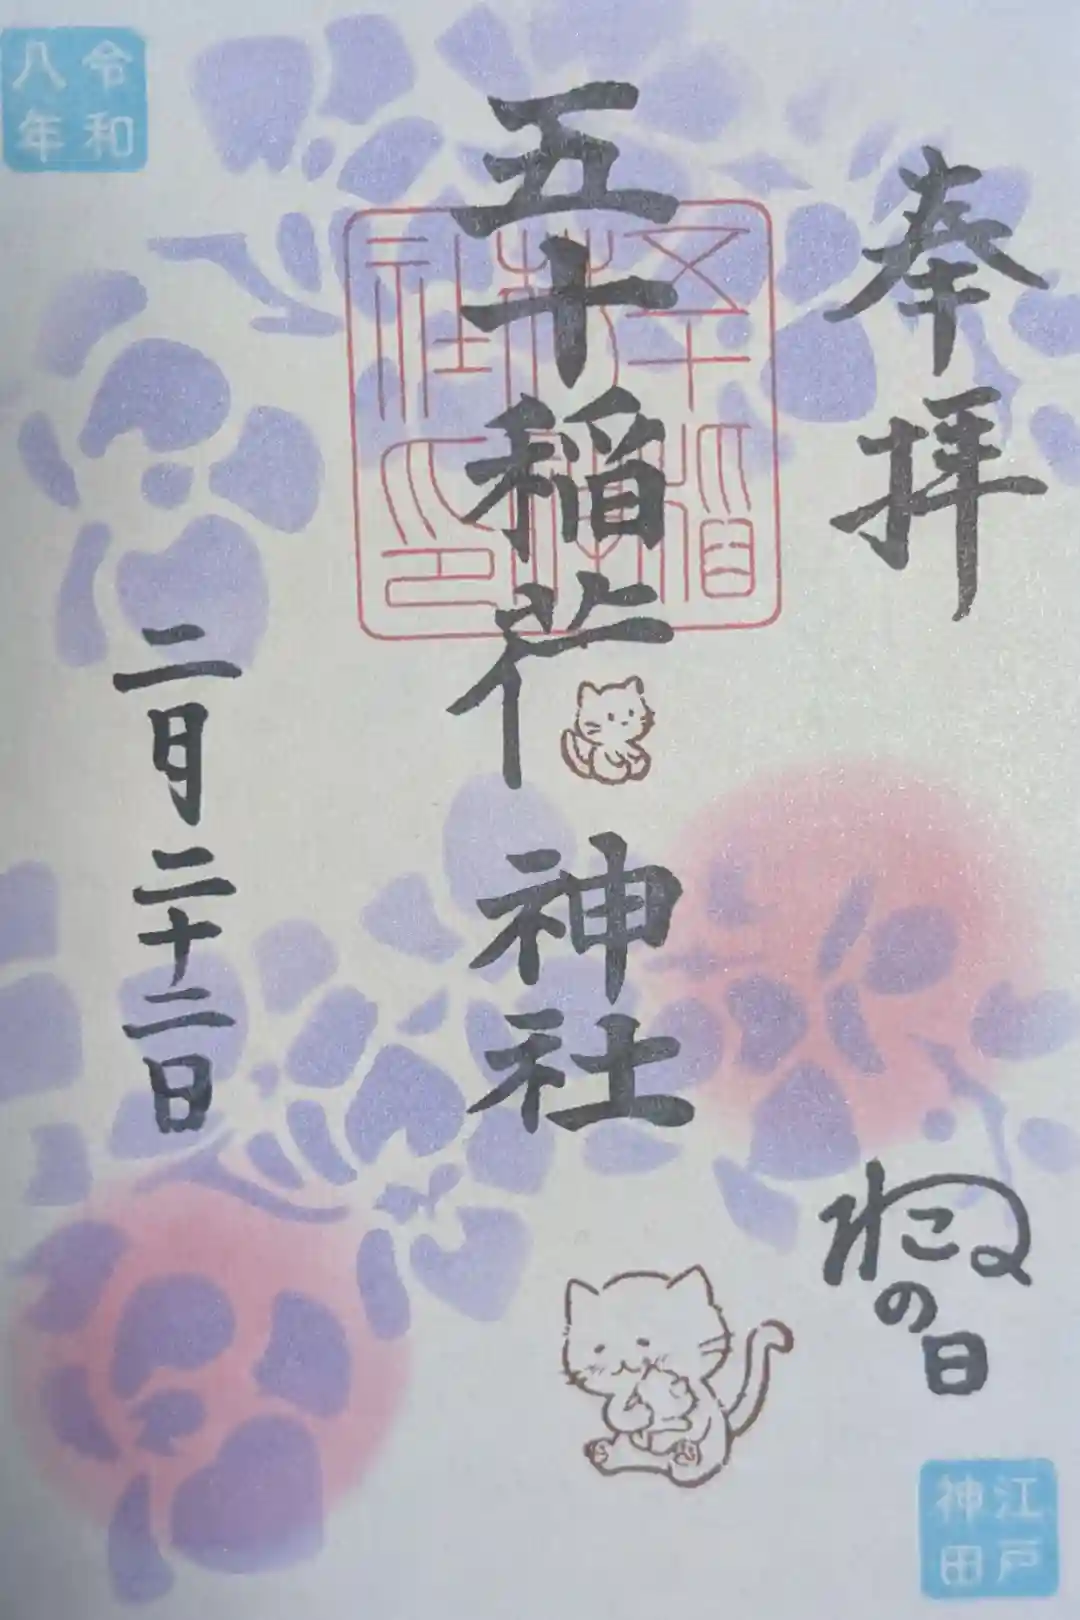 奉拝
ねこの日
江戸
神田
五十稲荷神社
五十稲荷神社御印
令和
八年
二月二十二日